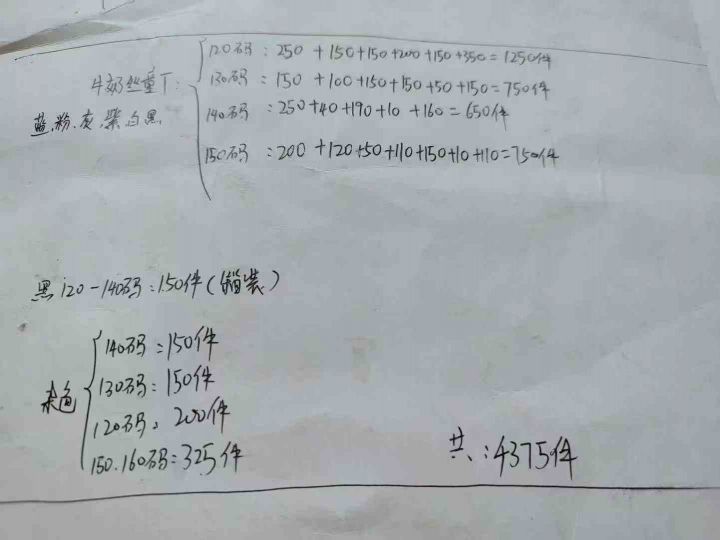 120码：250+150+150+200+150+350=1250件
牛奶丝童T：130码：150+100+150+150+50+150=750件
蓝.粉.灰.紫.白黑.
140码：250+40+190+10+160=650件
150码：200+120+50+110+150+10+110=750件
黑120-140码：150件(箱装)
杂色
140码：150件
130码：150件
120码：200件
150.160码：325件
共：4375件